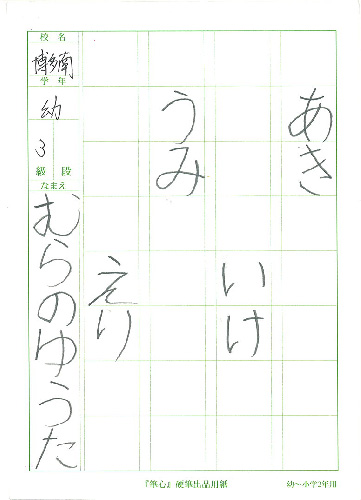 あき
いけ
うみ
えり
校名
博多南
学年
幼
3
級段
なまえ
むらのゆうた
『筆心』硬筆出品用紙
幼〜小学2年用